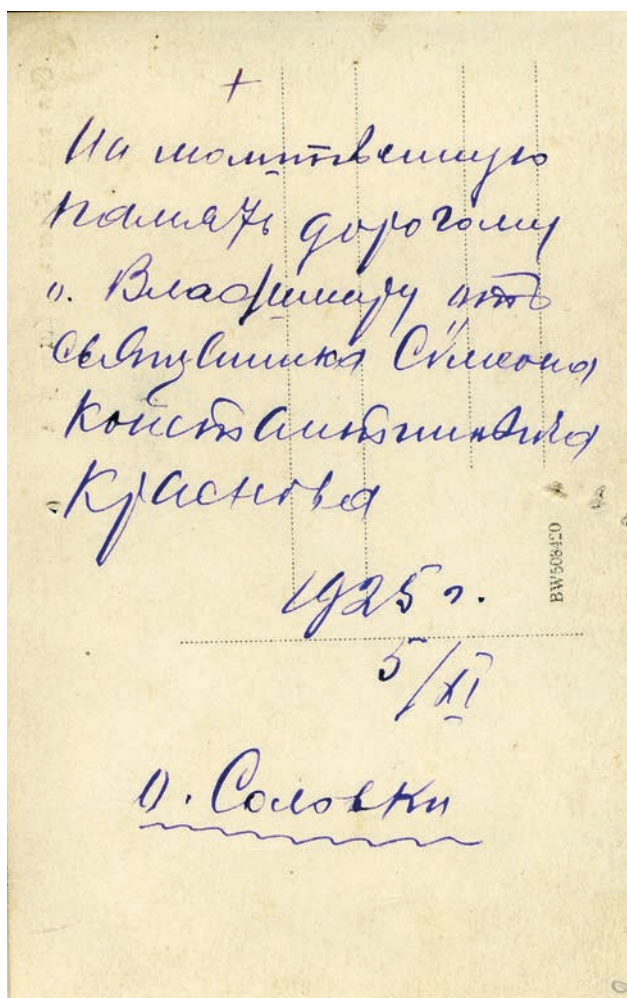 +
На молитвенную
память дорогому
о. Владимиру отъ
священника Симеона
Константиновича
Краснова
1925 г.
5/XI
о. Соловки
BW508420